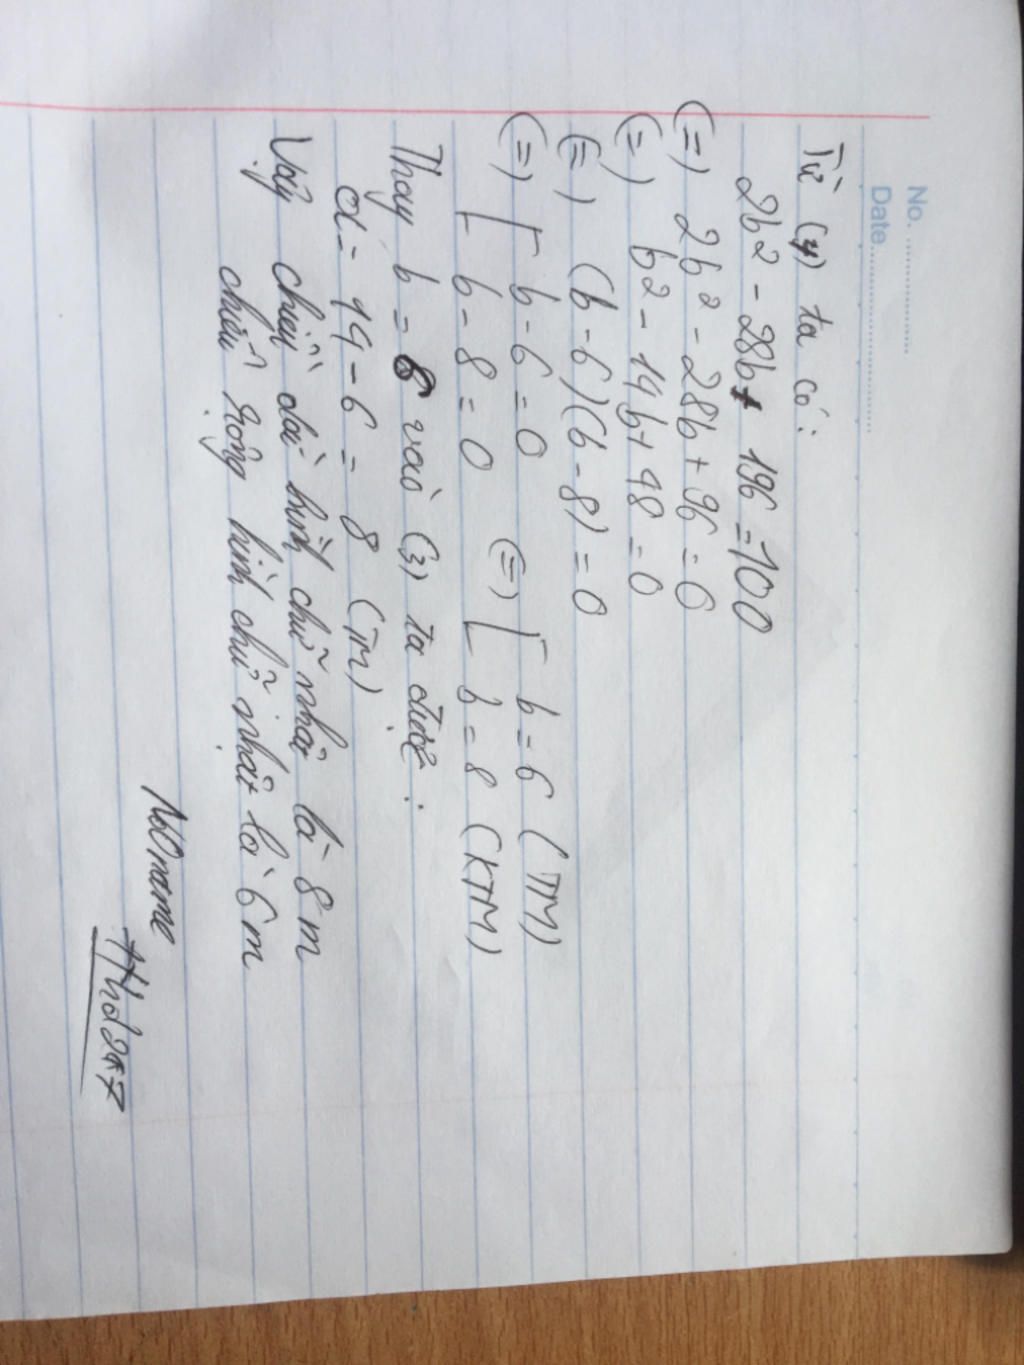 No. ...................
Date..........................
Từ (4) ta có:
2b² - 28b + 196 = 100
(=) 2b² - 28b + 96 = 0
(=) b² - 14b + 48 = 0
(=) (b-6)(b-8) = 0
(=) [ b-6=0 (=) [ b=6 (TM)
[ b-8=0 [ b=8 (KTM)
Thay b=6 vào (3) ta được:
d = 14-6 = 8 (TM)
Vậy chiều dài hình chữ nhật là 8m
chiều rộng hình chữ nhật là 6m
NoOname